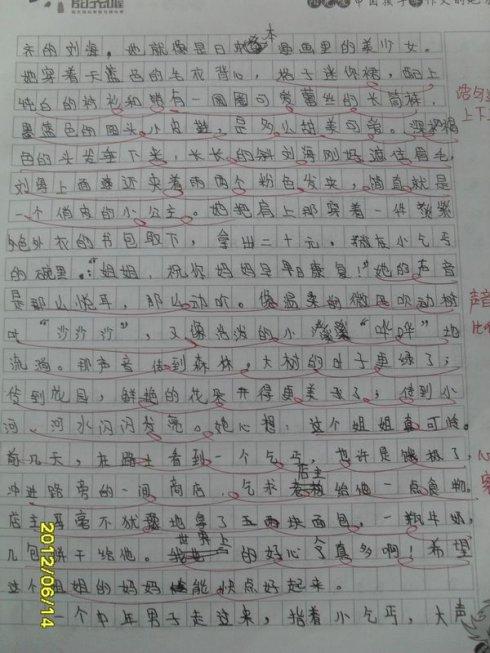 齐的刘海。她就像是日本漫画里的美少女。
她穿着天蓝色的毛衣背心，格子迷你裙，配上
纯白的衬衫和带有一圈圈可爱蕾丝的长筒袜，
墨蓝色的圆头小皮鞋，是多么甜美可爱。深褐
色的头发垂下来，长长的斜刘海刚好遮住眉毛，
刘海上面还夹着两个粉色发夹，简直就是
一个俏皮的小公主。她把肩上那穿着一件紫
色外衣的书包取下，拿出二十元，放在小乞丐
的碗里。：“姐姐，祝你妈妈早日康复！”她的声音
是那么悦耳，那么动听。像温柔的微风吹动树
叶“沙沙沙”，又像活泼的小“哗哗”地
流淌。那声音传到森林，大树的叶子更绿了；
传到花园，鲜艳的花朵开得更美了；传到小
河，河水闪闪发亮。她心想：这个姐姐真可怜。
前几天，在路上看到一个乞丐，也许是饿极了，
冲进路旁的一间商店，乞求店主给他一点食物。
店主毫不犹豫地拿了五块面包，一瓶牛奶，
几包饼干给他。世界上的好心人真多啊！希望
这个姐姐的妈妈能快点好起来。
一个中年男子走过来，指着小乞丐，大声
2012/06/14